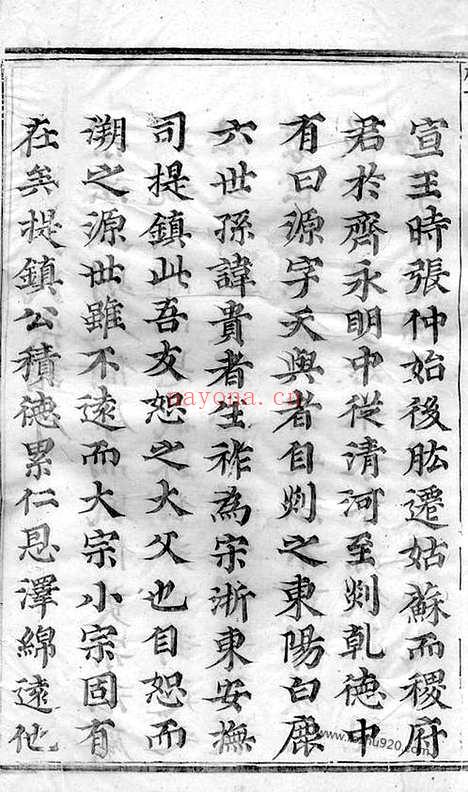 宣王時張仲始後肱遷姑蘇而稷府
君於齊永明中從清河至剡乾德中
有曰源字天與者自剡之東陽白鹿
六世孫諱貴者生祚為宋浙東安撫
司提鎮此吾友恕之大父也自恕而
溯之源世雖不遠而大宗小宗固有
在矣提鎮公積德累仁恩澤綿遠他
nayona.cn